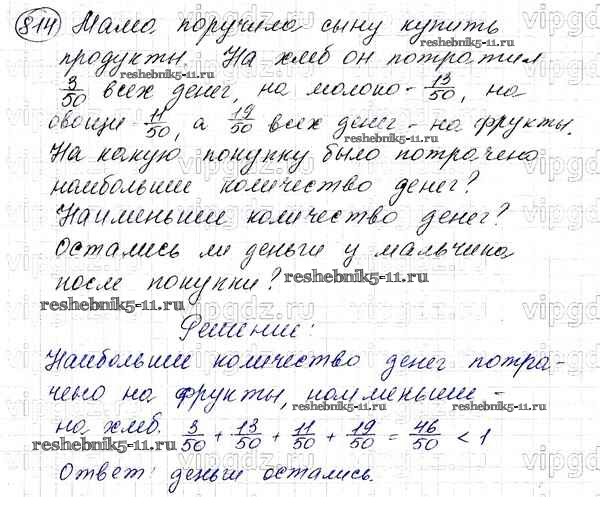 814 Мама поручила сыну купить
продукты. На хлеб он потратил
3/50 всех денег, на молоко - 13/50, на
овощи - 11/50, а 19/50 всех денег - на фрукты.
На какую покупку было потрачено
наибольшее количество денег?
Наименьшее количество денег?
Остались ли деньги у мальчика
после покупки?
Решение:
Наибольшее количество денег потра-
чено на фрукты, наименьшее -
на хлеб. 3/50 + 13/50 + 11/50 + 19/50 = 46/50 < 1
Ответ: деньги остались.
reshebnik5-11.ru
reshebnik5-11.ru
reshebnik5-11.ru
reshebnik5-11.ru
reshebnik5-11.ru
reshebnik5-11.ru
reshebnik5-11.ru
vipgdz.ru